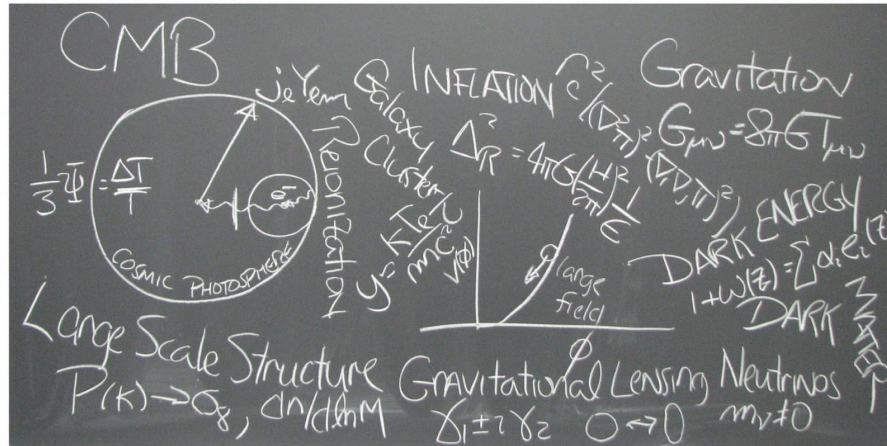 CMB
jeYem
1/3 Ψ = ΔT/T
e⁻
COSMIC PHOTOSPHERE
Reionization
Galaxy
Clusters
y = kTe/mc² τ
INFLATION
Δ²_R = 4πG(H/2π)² 1/ε
V(φ)
large
field
φ
Gravitation
Gμν = 8πG Tμν
DARK ENERGY
1+w(z) = Σ αi ei(z)
DARK
MATTER
Large Scale Structure
P(k) → σ8, dn/dlnM
Gravitational Lensing
γ1 ± i γ2 O ↔ 0
Neutrinos
mν ≠ 0